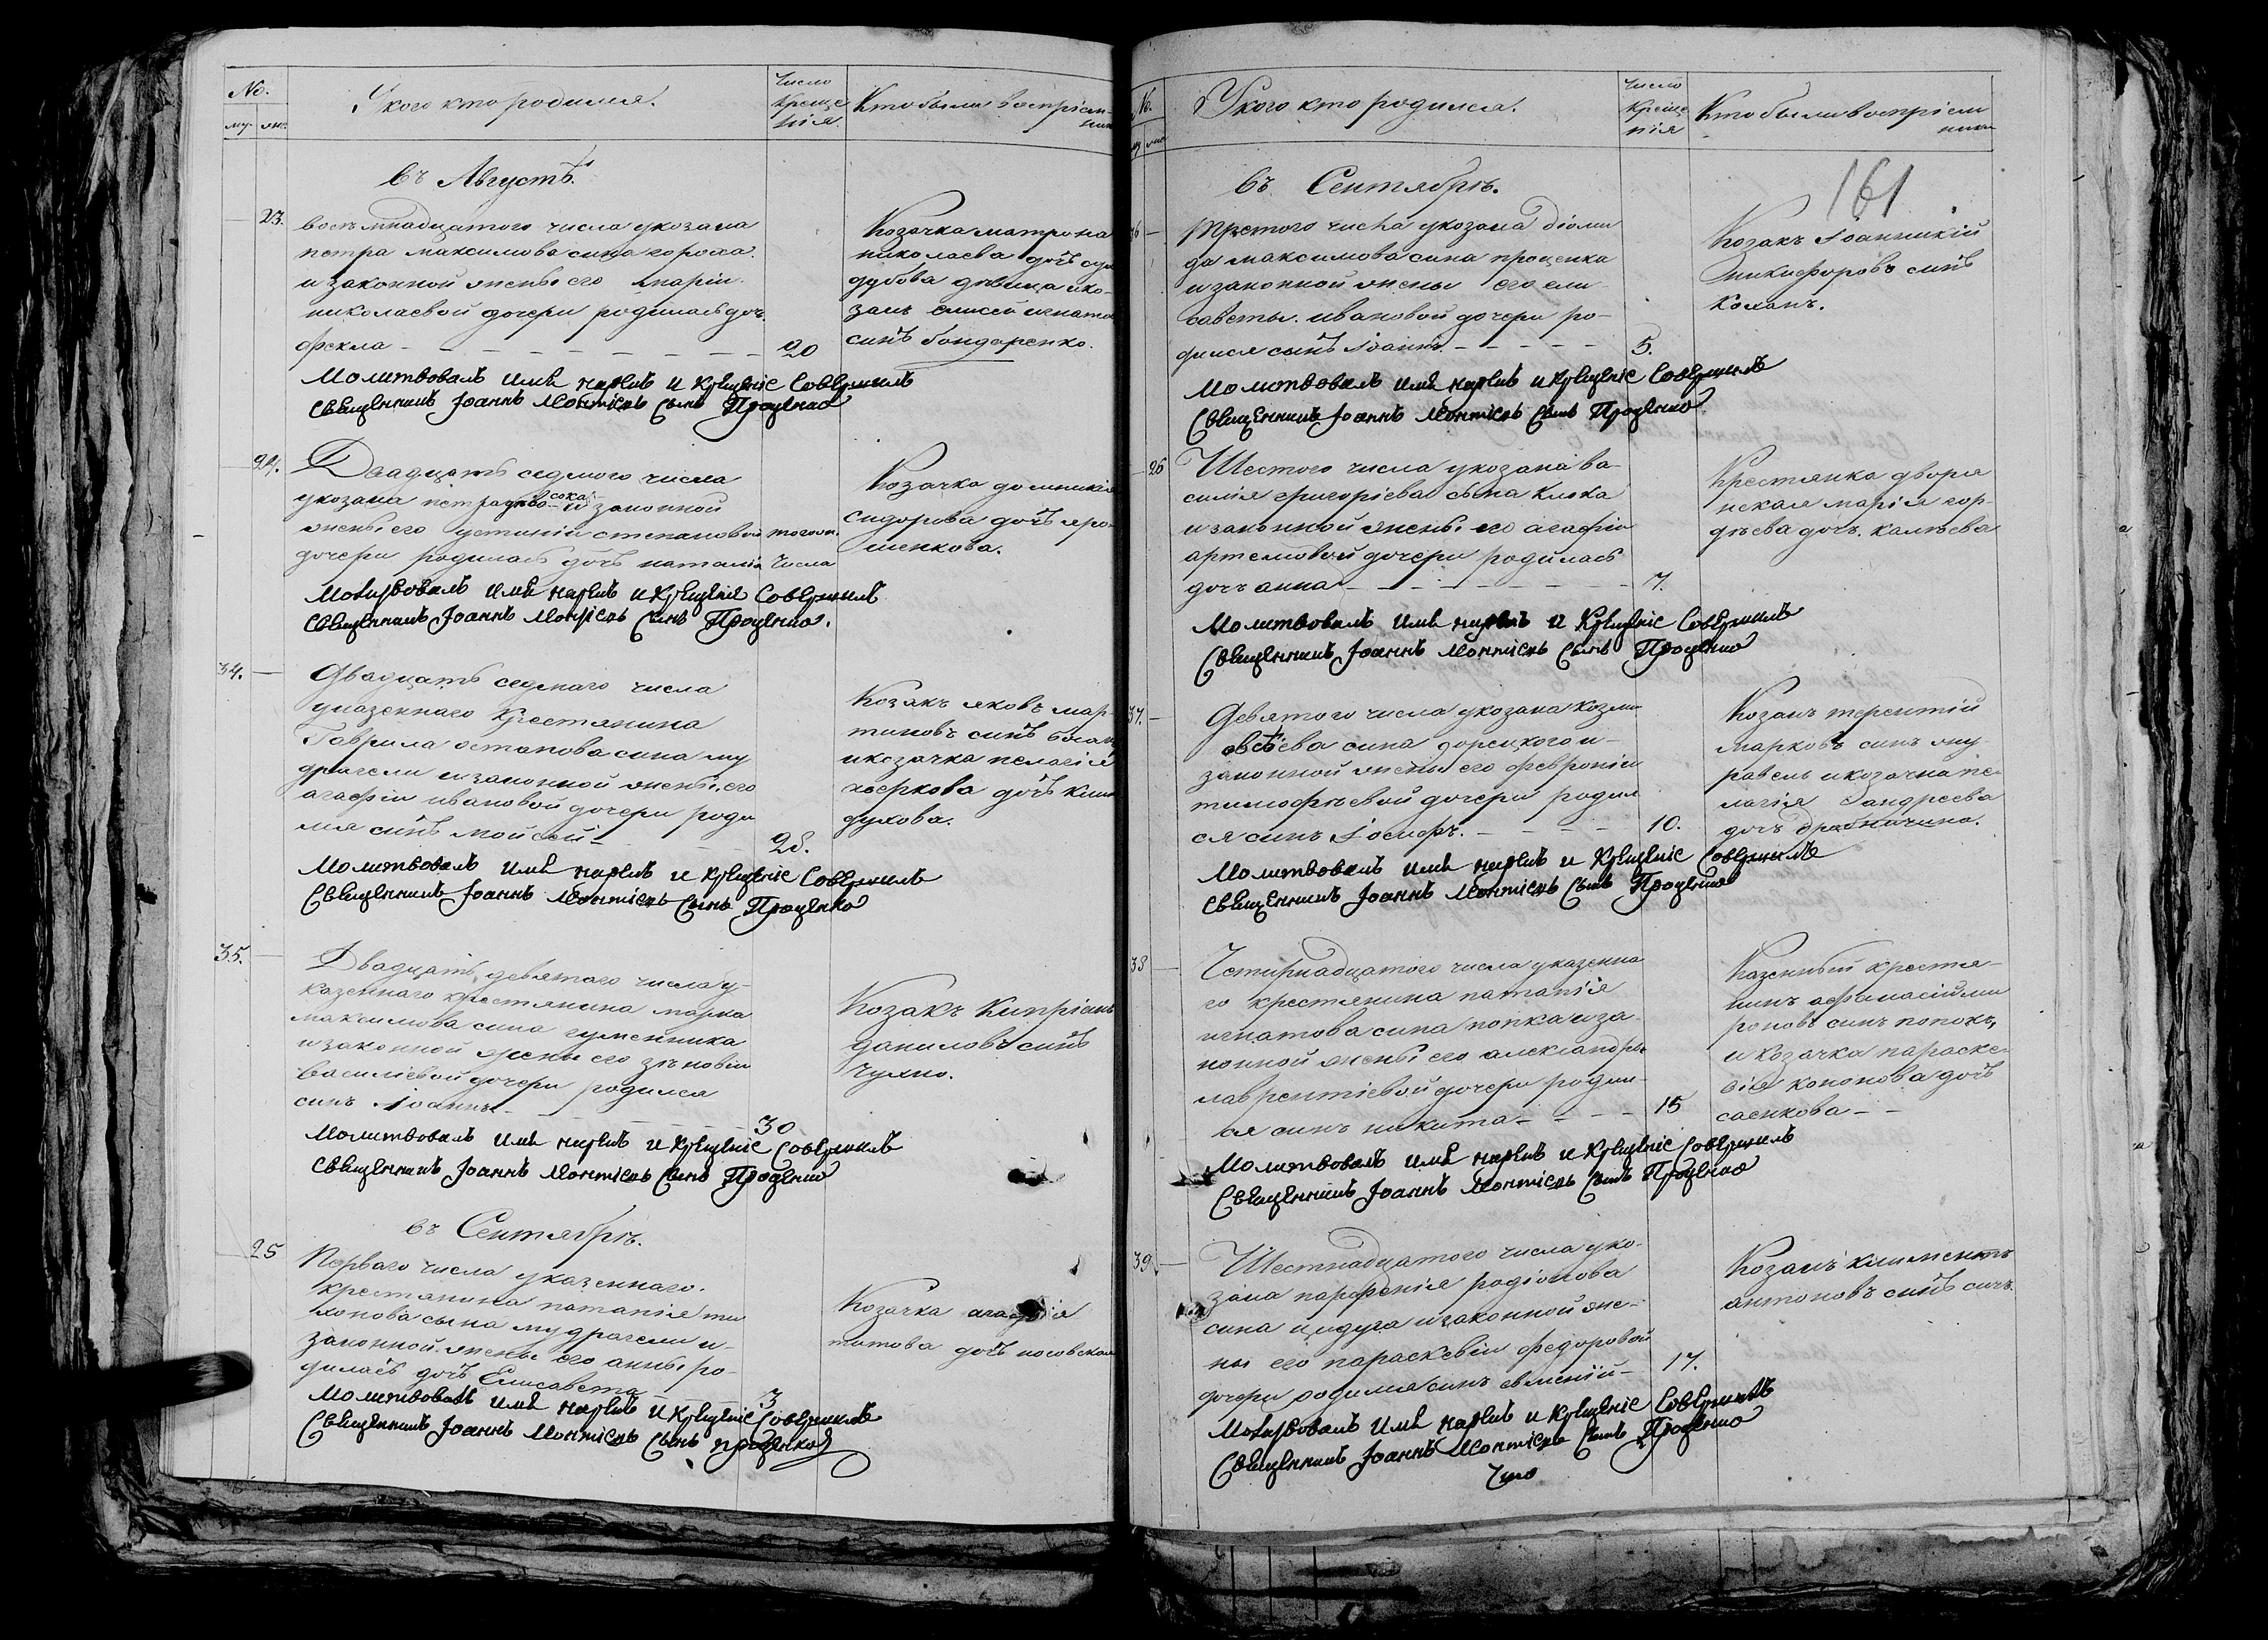 No.
му. жн.
У кого кто родился.
Число
креще
нія.
Кто были воспріем-
ники
въ Августѣ.
23.
восъмнадцатого числа укозака
петра максимова сина гороха
и законной жены его маріи
николаевой дочери родилась доч.
фекла
20
Козачка матрона
николаева дочъ
дубова дѣвица и ко-
закъ елисей игнатов
синъ бондаренко.
Молитвовалъ имя нарекъ и крещеніе совершилъ
Священникъ Іоаннъ сынъ Проценко
24.
Двадцать седмого числа
укозака петра сока и законной
жены его устиніи степановой
дочери родилась дочъ наталія
тогож
числа
Козачка домникія
сидорова дочъ яро-
шенкова.
Молитвовалъ имя нарекъ и крещеніе совершилъ
Священникъ Іоаннъ сынъ Проценко.
34.
Двадцать седмаго числа
указеннаго крестянина
Гаврила остапова сина му
драгели и законной жены его
агафіи ивановой дочери роди
лся синъ мойсей
28.
Козакъ яковъ мар-
тиновъ синъ
и козачка пелагія
дочъ
духова.
Молитвовалъ имя нарекъ и крещеніе совершилъ
Священникъ Іоаннъ сынъ Проценко
35.
Двадцать девятаго числа у-
казеннаго крестянина марка
максимова сина гуменника
и законной жены его зѣновіи
василіевой дочери родился
синъ Іоаннъ
30
Козакъ Кипріянъ
даниловъ синъ
Чухно.
Молитвовалъ имя нарекъ и крещеніе совершилъ
Священникъ Іоаннъ сынъ Проценко
въ Сентябрѣ.
25
Перваго числа указеннаго
крестянина патапія ти
хонова сына мудрагели и
законной жены его анны ро-
дилась дочъ Елисавета
3
Козачка агафія
титова дочъ носовская
Молитвовалъ имя нарекъ и крещеніе совершилъ
Священникъ Іоаннъ сынъ проценко
No.
У кого кто родился.
Число
креще
нія
Кто были воспріем
ники
161
въ Сентябрѣ.
36
Третого числа укозака діоми
да максимова сина проценка
и законной жены его ели
саветы ивановой дочери ро-
дился сынъ Іоаннъ
5.
Козакъ Іоанникій
никифоровъ синъ
коханъ.
Молитвовалъ имя нарекъ и крещеніе совершилъ
Священникъ Іоаннъ сынъ Проценко
26
Шестого числа укозака ва-
силія григоріева сына клока
и законной жены его агафіи
артемовой дочери родилась
дочъ анна
7.
Крестянка дворя
нская марія гор-
дѣева дочъ калѣева
Молитвовалъ имя нарекъ и крещеніе совершилъ
Священникъ Іоаннъ сынъ Проценко
37.
Девятого числа укозака козми
овсѣева сина горецкого и
законной жены его февроніи
тимофѣевой дочери родил
ся синъ Іосифъ.
10.
Козакъ терентій
марковъ синъ жу
равель и козачка пе
лагія андреева
дочъ
Молитвовалъ имя нарекъ и крещеніе совершилъ
Священникъ Іоаннъ сынъ Проценко
38
Четирнадцатого числа указенна
го крестянина патапія
игнатова сина попка и за
конной жены его александры
лаврентіевой дочери родил-
ся синъ никита
15
Казенный крестя-
нинъ афанасій ми
роновъ синъ попокъ,
и козачка параске-
вія кононова дочъ
саенкова
Молитвовалъ имя нарекъ и крещеніе совершилъ
Священникъ Іоаннъ сынъ Проценко
39.
Шестнадцатого числа уко-
зака парфенія родіонова
сина и законной же-
ны его параскевіи федоровой
дочери родился синъ евмений
17.
Козакъ климентъ
антоновъ синъ сичъ.
Молитвовалъ имя нарекъ и крещеніе совершилъ
Священникъ Іоаннъ сынъ Проценко